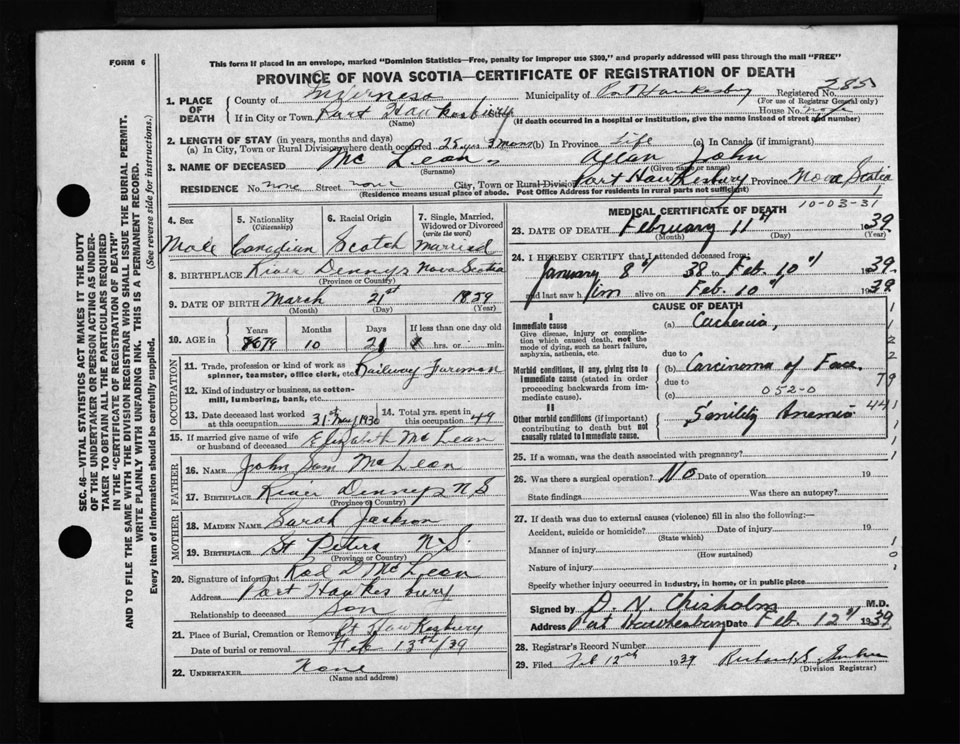 FORM 6
This form if placed in an envelope, marked "Dominion Statistics—Free, penalty for improper use $300," and properly addressed will pass through the mail "FREE"
PROVINCE OF NOVA SCOTIA—CERTIFICATE OF REGISTRATION OF DEATH
385
1. PLACE OF DEATH
County of Inverness Municipality of Port Hawkesbury Registered No.
(For use of Registrar General only)
If in City or Town Port Hawkesbury House No.
(Name) (If death occurred in a hospital or institution, give the name instead of street and number)
2. LENGTH OF STAY (in years, months and days)
(a) In City, Town or Rural Division where death occurred 25 yrs 3 mons (b) In Province Life (c) In Canada (if immigrant)
3. NAME OF DECEASED McLean, Allan John
(Surname) (Given name or names)
RESIDENCE No. none Street none City, Town or Rural Division Port Hawkesbury Province Nova Scotia
(Residence means usual place of abode. Post Office Address for residents in rural parts not sufficient)
4. Sex
Male
5. Nationality (Citizenship)
Canadian
6. Racial Origin
Scotch
7. Single, Married, Widowed or Divorced (write the word)
Married
8. BIRTHPLACE River Dennys Nova Scotia
(Province or County)
9. DATE OF BIRTH March 21st 1859
(Month) (Day) (Year)
10. AGE in
Years Months Days If less than one day old
79 10 21 hrs. or min.
OCCUPATION
11. Trade, profession or kind of work as spinner, teamster, office clerk, etc. Railway Foreman
12. Kind of industry or business, as cotton-mill, lumbering, bank, etc.
13. Date deceased last worked at this occupation 31st 1930
14. Total yrs. spent in this occupation 49
15. If married give name of wife or husband of deceased Elizabeth McLean
FATHER
16. NAME John Sam McLean
17. BIRTHPLACE River Dennys N S
(Province or Country)
MOTHER
18. MAIDEN NAME Sarah Jackson
19. BIRTHPLACE St Peters N.S.
(Province or Country)
20. Signature of informant Rod D McLean
Address Port Hawkesbury
Relationship to deceased Son
21. Place of Burial, Cremation or Removal Pt Hawkesbury
Date of burial or removal Feb 13th/39
22. UNDERTAKER None
(Name and address)
10-03-31
MEDICAL CERTIFICATE OF DEATH
23. DATE OF DEATH February 11th 1939
(Month) (Day) (Year)
24. I HEREBY CERTIFY that I attended deceased from:
January 8th 38 to Feb. 10th 1939.
and last saw him alive on Feb. 10th 1939.
CAUSE OF DEATH
I
Immediate cause
Give disease, injury or complication which caused death, not the mode of dying, such as heart failure, asphyxia, asthenia, etc.
(a) Cachexia,
due to
Morbid conditions, if any, giving rise to immediate cause (stated in order proceeding backwards from immediate cause).
(b) Carcinoma of Face.
due to
(c) 052-0
II
Other morbid conditions (if important) contributing to death but not causally related to immediate cause.
Senility Anemia
1
1
2
2
79
44
1
25. If a woman, was the death associated with pregnancy?
26. Was there a surgical operation? No Date of operation 19
State findings Was there an autopsy?
27. If death was due to external causes (violence) fill in also the following:—
Accident, suicide or homicide? Date of injury 19
(State which)
Manner of injury
(How sustained)
Nature of injury
Specify whether injury occurred in industry, in home, or in public place
1
0
1
Signed by D. N. Chisholm M.D.
Address Port Hawkesbury Date Feb. 12th 1939
28. Registrar's Record Number
29. Filed Feb 12th 1939
(Division Registrar)
SEC. 46—VITAL STATISTICS ACT MAKES IT THE DUTY OF THE UNDERTAKER OR PERSON ACTING AS UNDERTAKER TO OBTAIN ALL THE PARTICULARS REQUIRED IN THE "CERTIFICATE OF REGISTRATION OF DEATH" AND TO FILE THE SAME WITH THE DIVISION REGISTRAR WHO SHALL ISSUE THE BURIAL PERMIT.
WRITE PLAINLY WITH UNFADING INK. THIS IS A PERMANENT RECORD.
Every item of information should be carefully supplied. (See reverse side for instructions.)